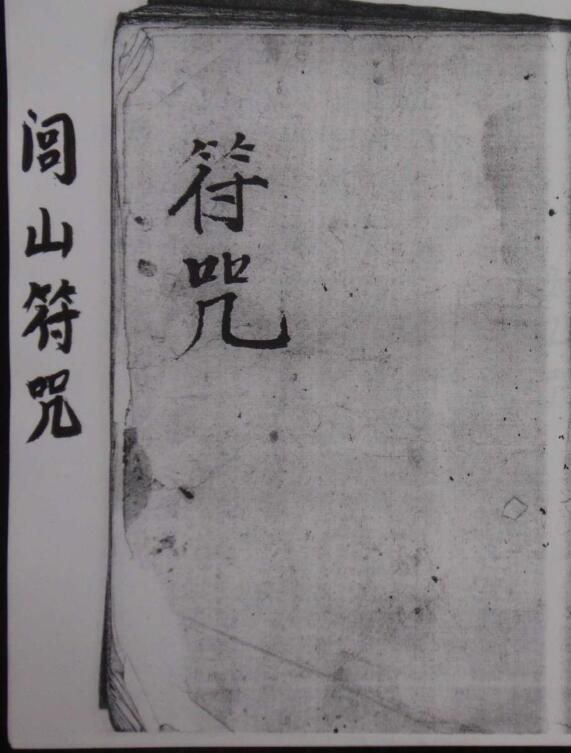 符咒
闾山符咒